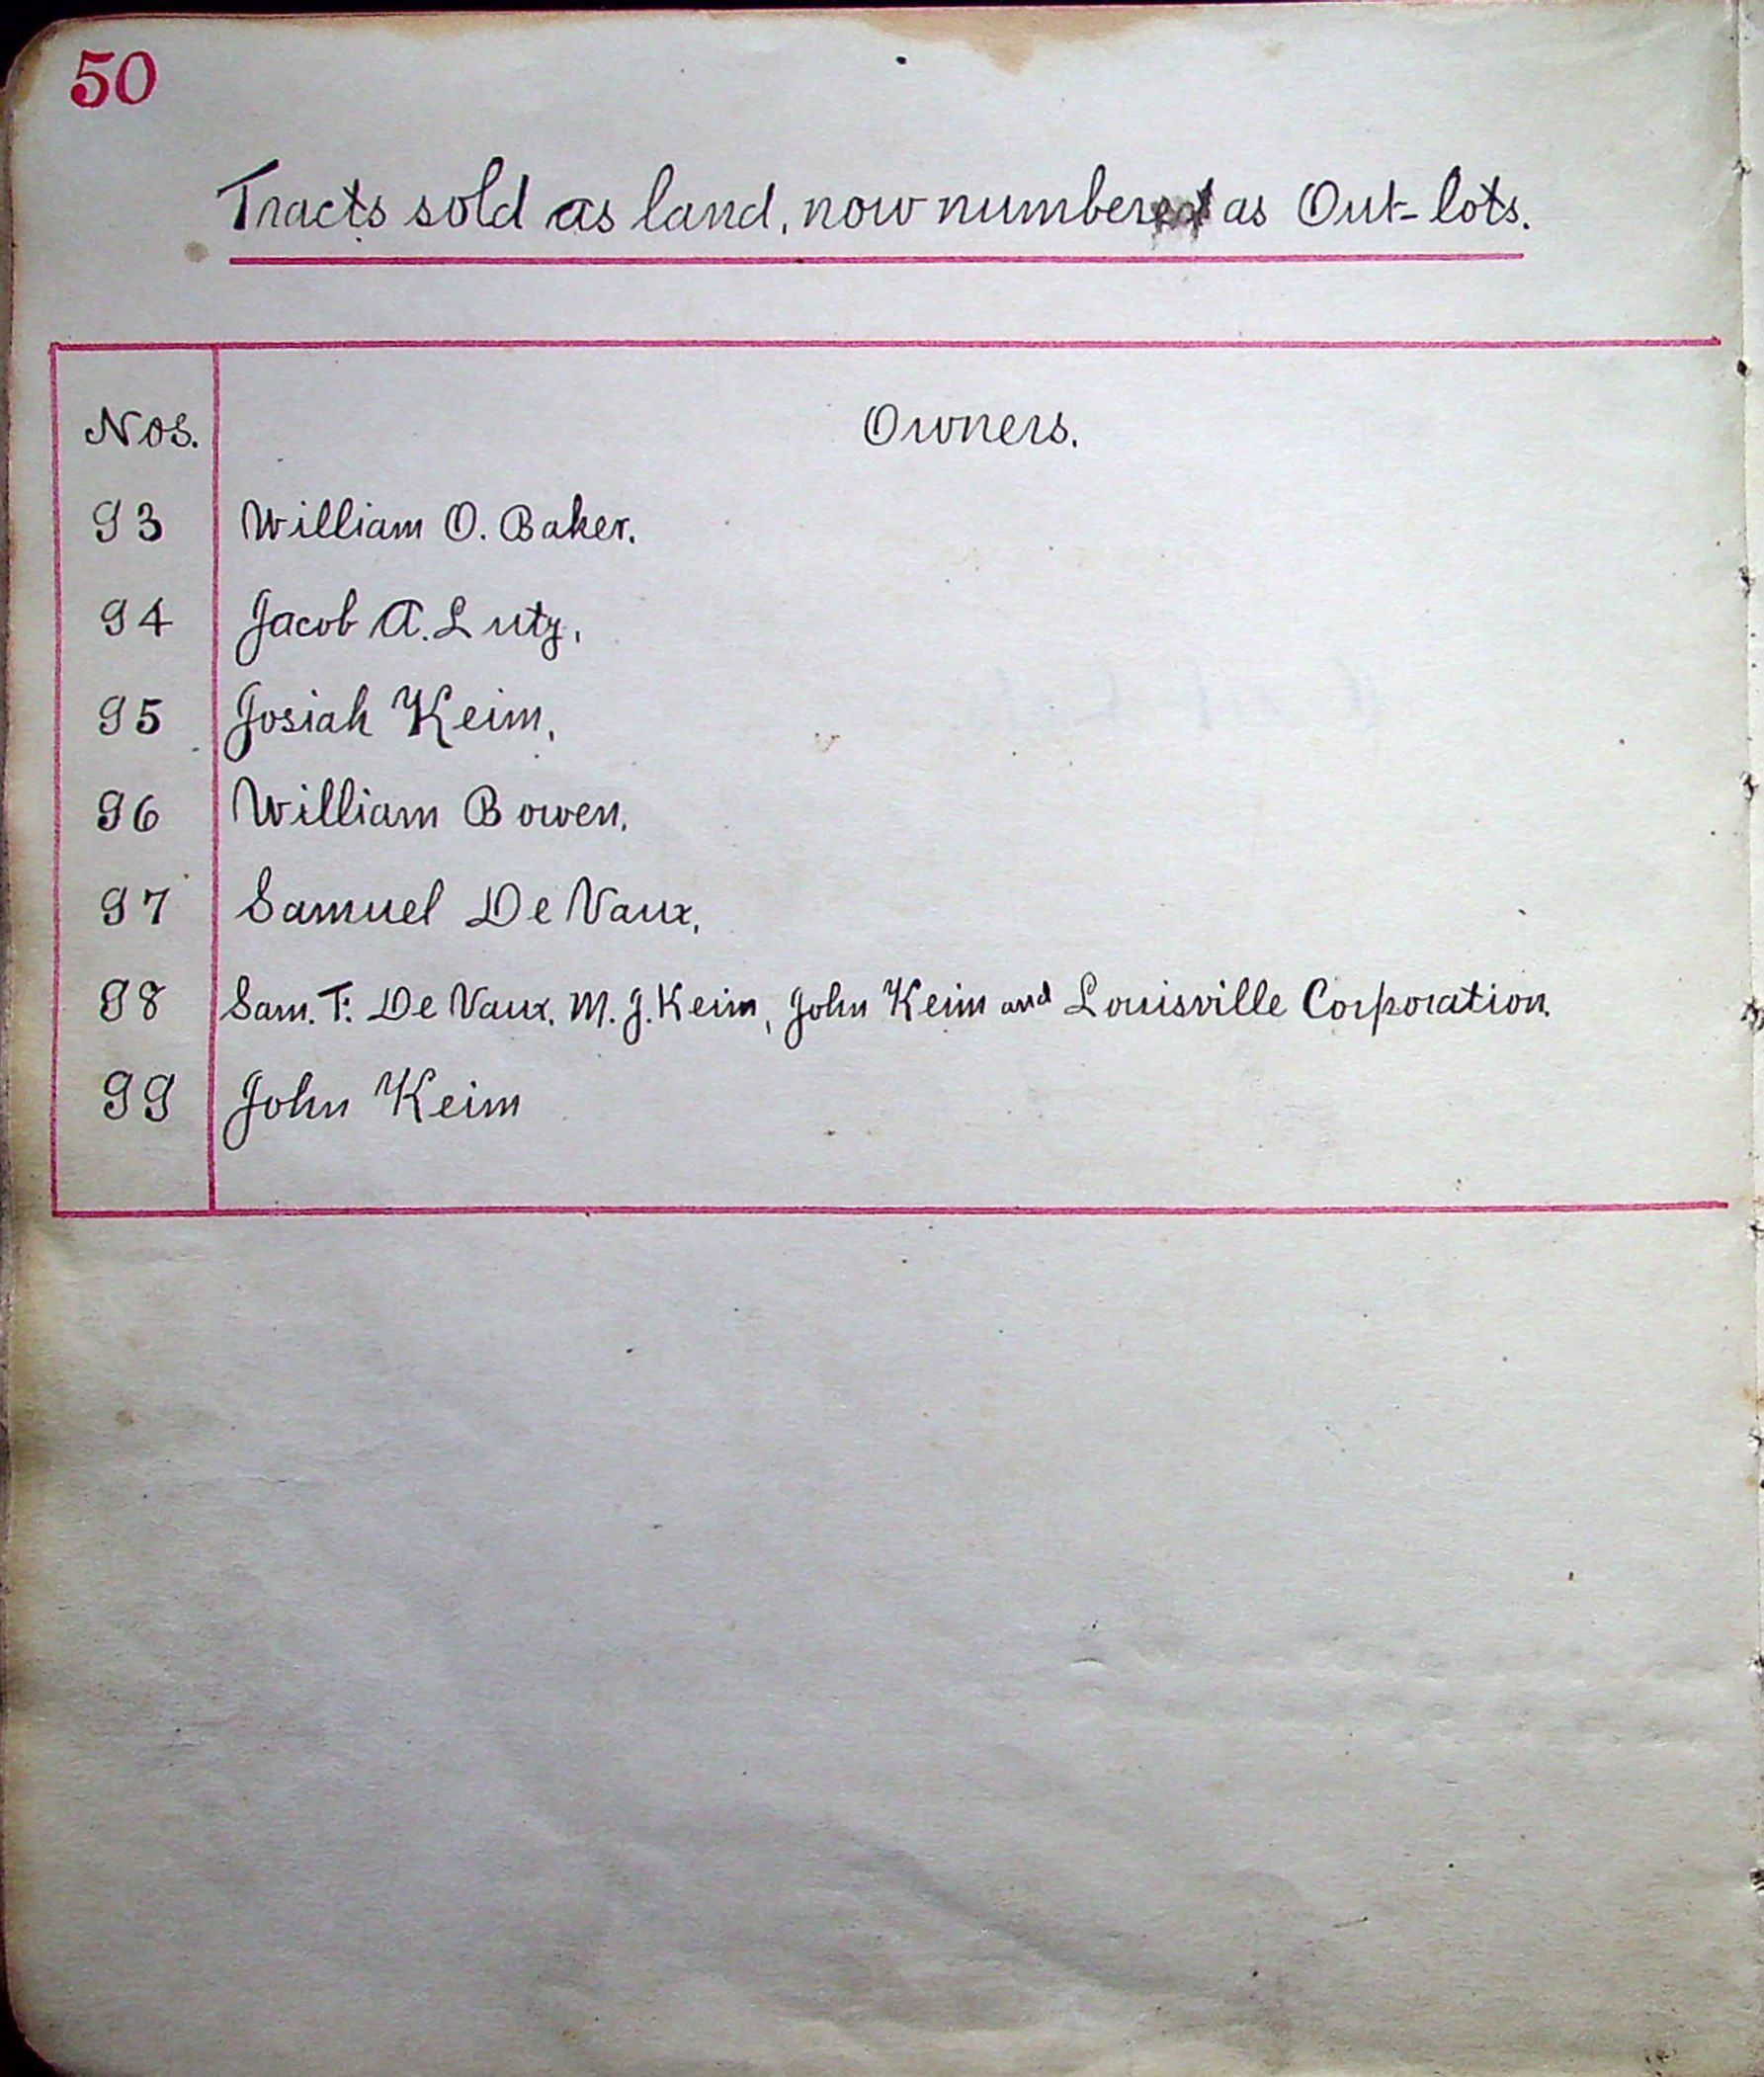 50
Tracts sold as land, now numbered as Out-lots.
Nos. Owners.
93 William O. Baker.
94 Jacob A. Lutz,
95 Josiah Keim,
96 William Bowen,
97 Samuel De Vaux,
98 Sam. T. De Vaux, M. J. Keim, John Keim and Louisville Corporation.
99 John Keim